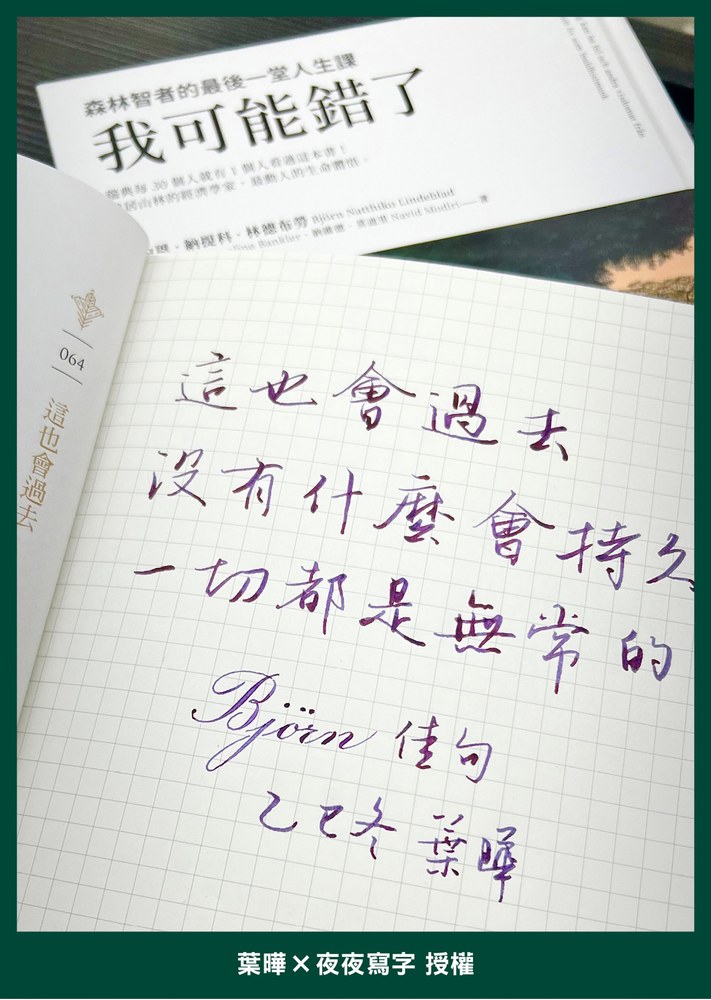 森林智者的最後一堂人生課
我可能錯了
瑞典每 30 個人就有 1 個人看過這本書！
居山林的經濟學家，最動人的生命體悟。
納提科・林德布勞 Björn Natthiko Lindeblad
Bankler、
Navid Modiri——著
064
這也會過去
這也會過去
沒有什麼會持久
一切都是無常的
Björn 佳句
乙巳冬 葉曄
葉曄×夜夜寫字 授權